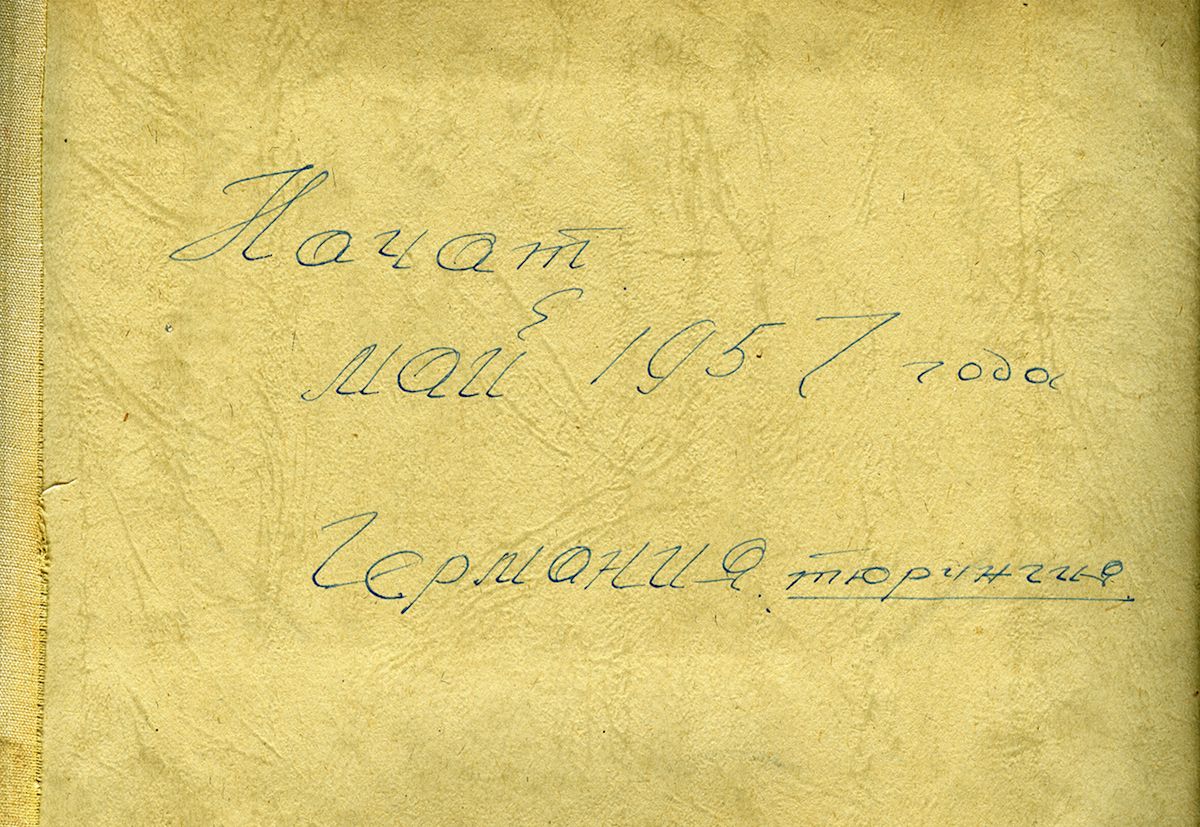 Начат
май 1957 года
Германия. тюрингия.